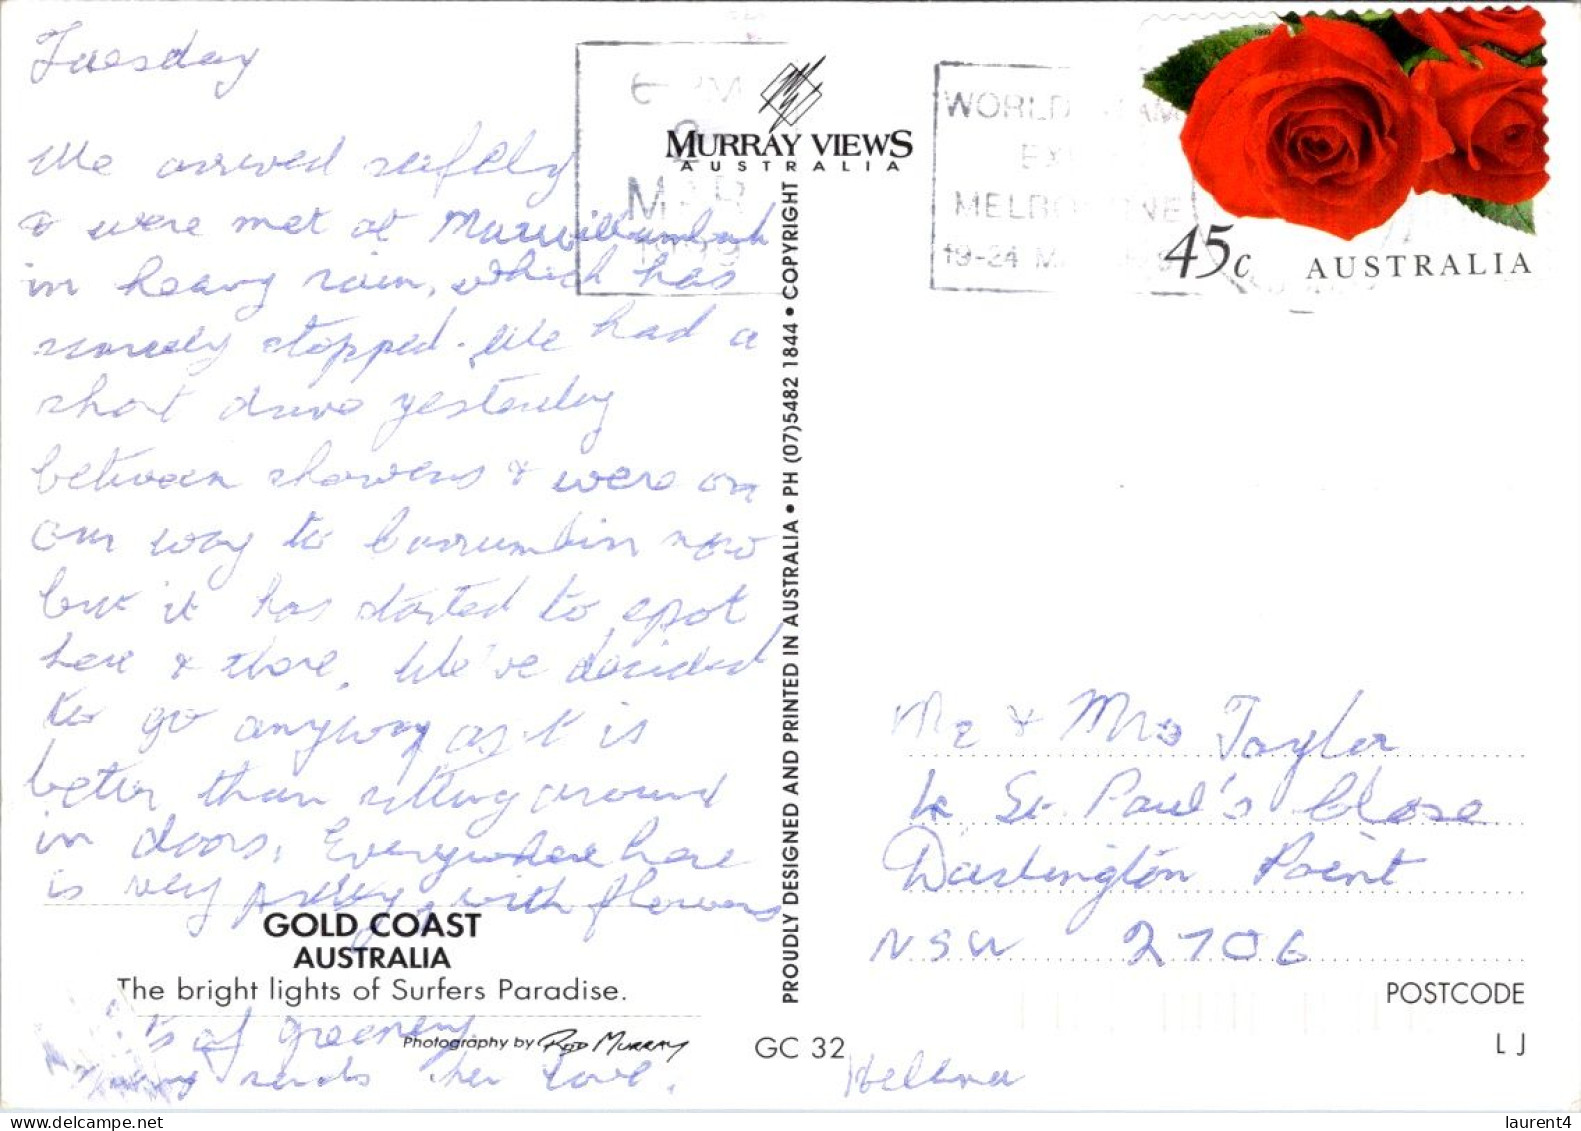 Tuesday
We arrived safely
& were met at Murwillumbah
in heavy rain, which has
stopped. We had a
short drive yesterday
between showers & were on
our way to Currumbin now
but it has started to spot
here & there. We've decided
to go anyway as it is
better than sitting around
in doors. Everywhere here
is very pretty, with flowers
GOLD COAST
AUSTRALIA
The bright lights of Surfers Paradise.
of greenery
Photography by ROD MURRAY
sends her love.
Helena
GC 32
MURRAY VIEWS
AUSTRALIA
PROUDLY DESIGNED AND PRINTED IN AUSTRALIA • PH (07)5482 1844 • COPYRIGHT
6 PM
2
MAR
1999
WORLD STAMP
EXPO
MELBOURNE
19-24 MAR
1999
45c AUSTRALIA
Mr & Mrs Taylor
St. Paul's Close
Darlington Point
NSW 2706
POSTCODE
L J
laurent4